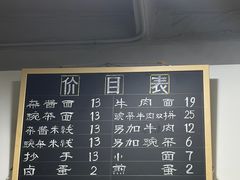 价目表
杂酱面 13 牛肉面 19
豌杂面 13 豌杂牛肉双拼 25
杂酱米线 13 另加牛肉 12
豌杂米线 13 另加豌杂 6
抄手 13 小面 7
卤蛋 2 煎蛋 2